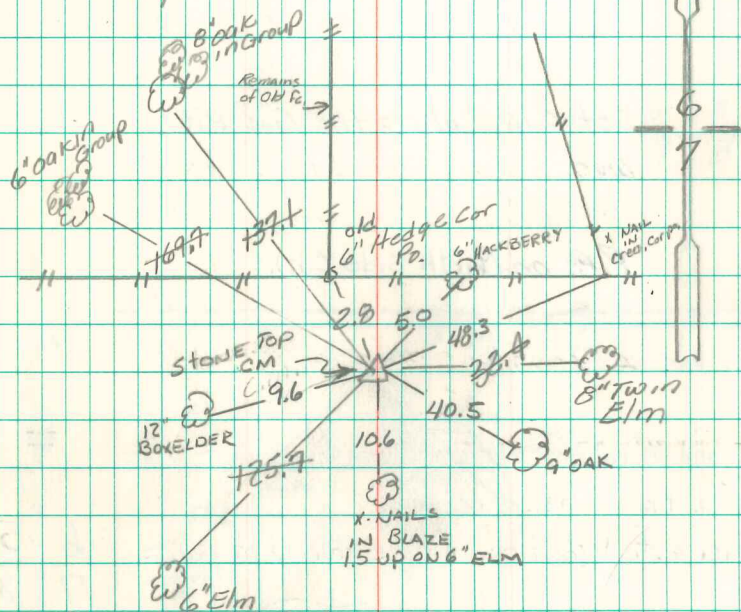 8" oak
in Group
Remains
of Old Fc.
6
7
6" oak in
Group
old
6" Hedge Cor
Po.
6" HACKBERRY
X NAIL
IN
Creo. Cor. Po.
169.7
137.1
2.8
5.0
48.3
STONE TOP
CM
9.6
32.4
8" Twin
Elm
12"
BOXELDER
40.5
9" OAK
10.6
125.7
X-NAILS
IN BLAZE
1.5 UP ON 6" ELM
6" Elm